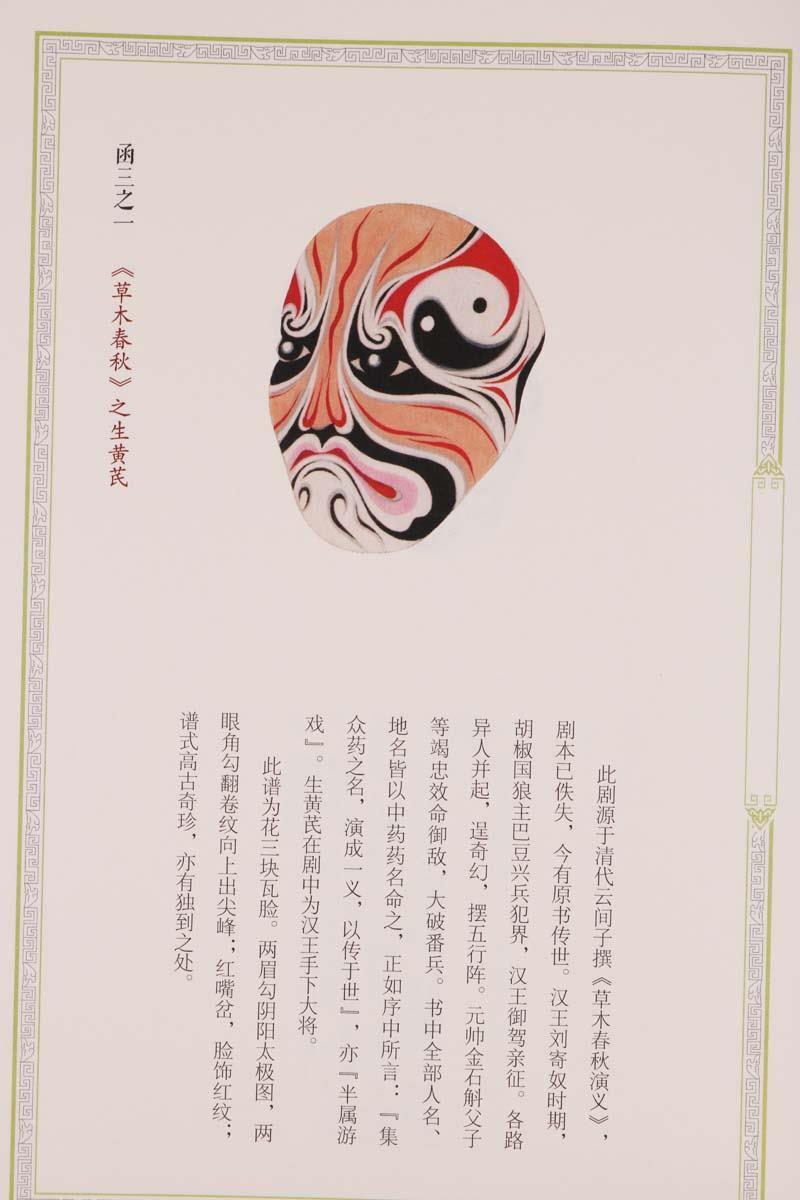 函三之一 《草木春秋》之生黄芪
此剧源于清代云间子撰《草木春秋演义》，
剧本已佚失，今有原书传世。汉王刘寄奴时期，
胡椒国狼主巴豆兴兵犯界，汉王御驾亲征。各路
异人并起，逞奇幻，摆五行阵。元帅金石斛父子
等竭忠效命御敌，大破番兵。书中全部人名、
地名皆以中药药名命之，正如序中所言：『集
众药之名，演成一义，以传于世』，亦『半属游
戏』。生黄芪在剧中为汉王手下大将。
此谱为花三块瓦脸。两眉勾阴阳太极图，两
眼角勾翻卷纹向上出尖峰；红嘴岔，脸饰红纹；
谱式高古奇珍，亦有独到之处。